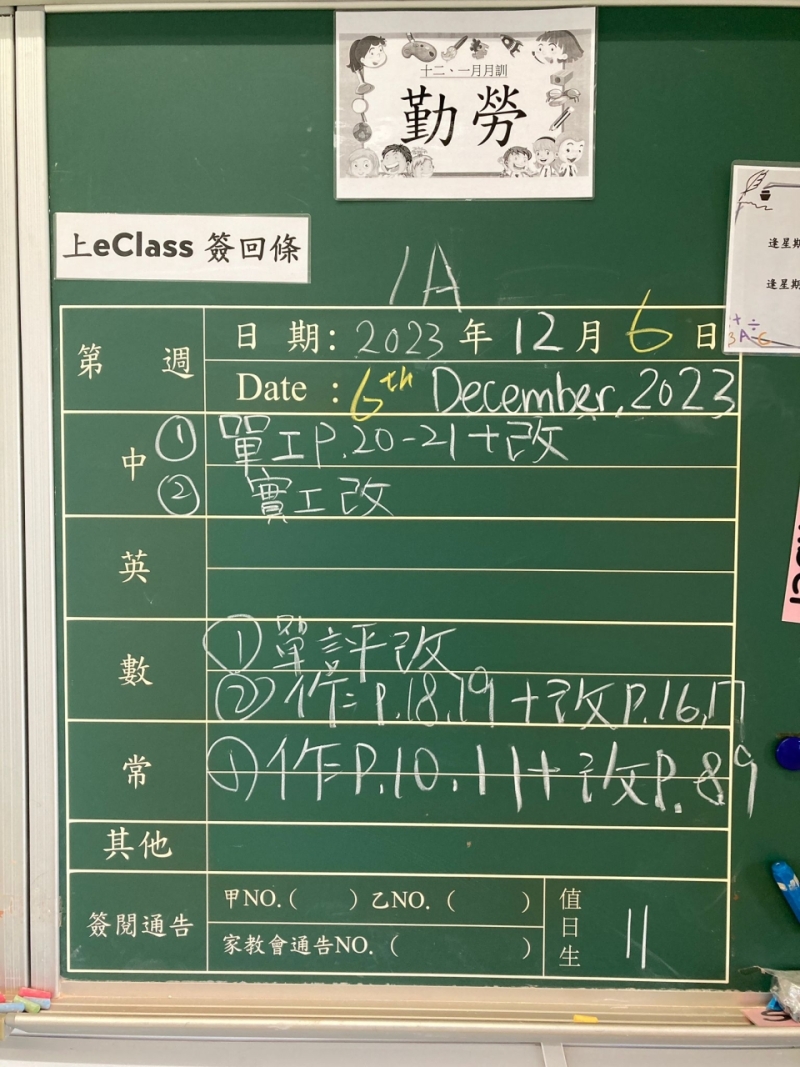 十二、一月月訓
勤勞
上eClass 簽回條
逢星期
逢星期
1A
第 週
日 期: 2023 年 12 月 6 日
Date : 6th December, 2023
中 ① 單工P.20-21+改
② 實工改
英
數 ① 單評改
② 作二 P.18,19 + 改P.16,17
常 ① 作二P.10,11+ 改P.8,9
其他
簽閱通告
甲NO.( ) 乙NO. ( )
家教會通告NO. ( )
值日生 11